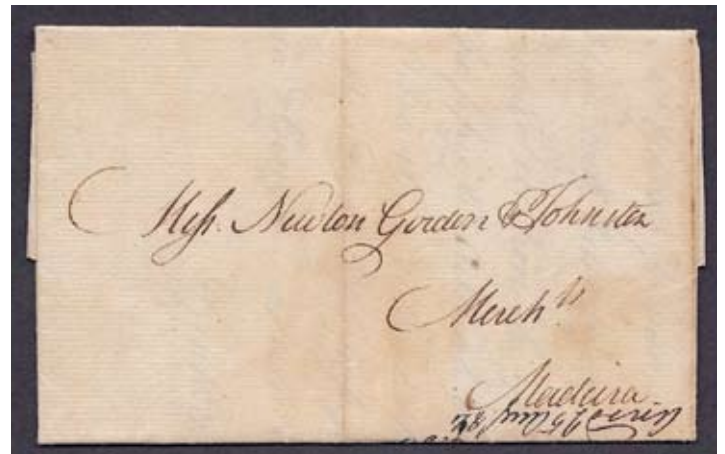 Messrs. Newton Gordon & Johnston
Merchts.
Madeira